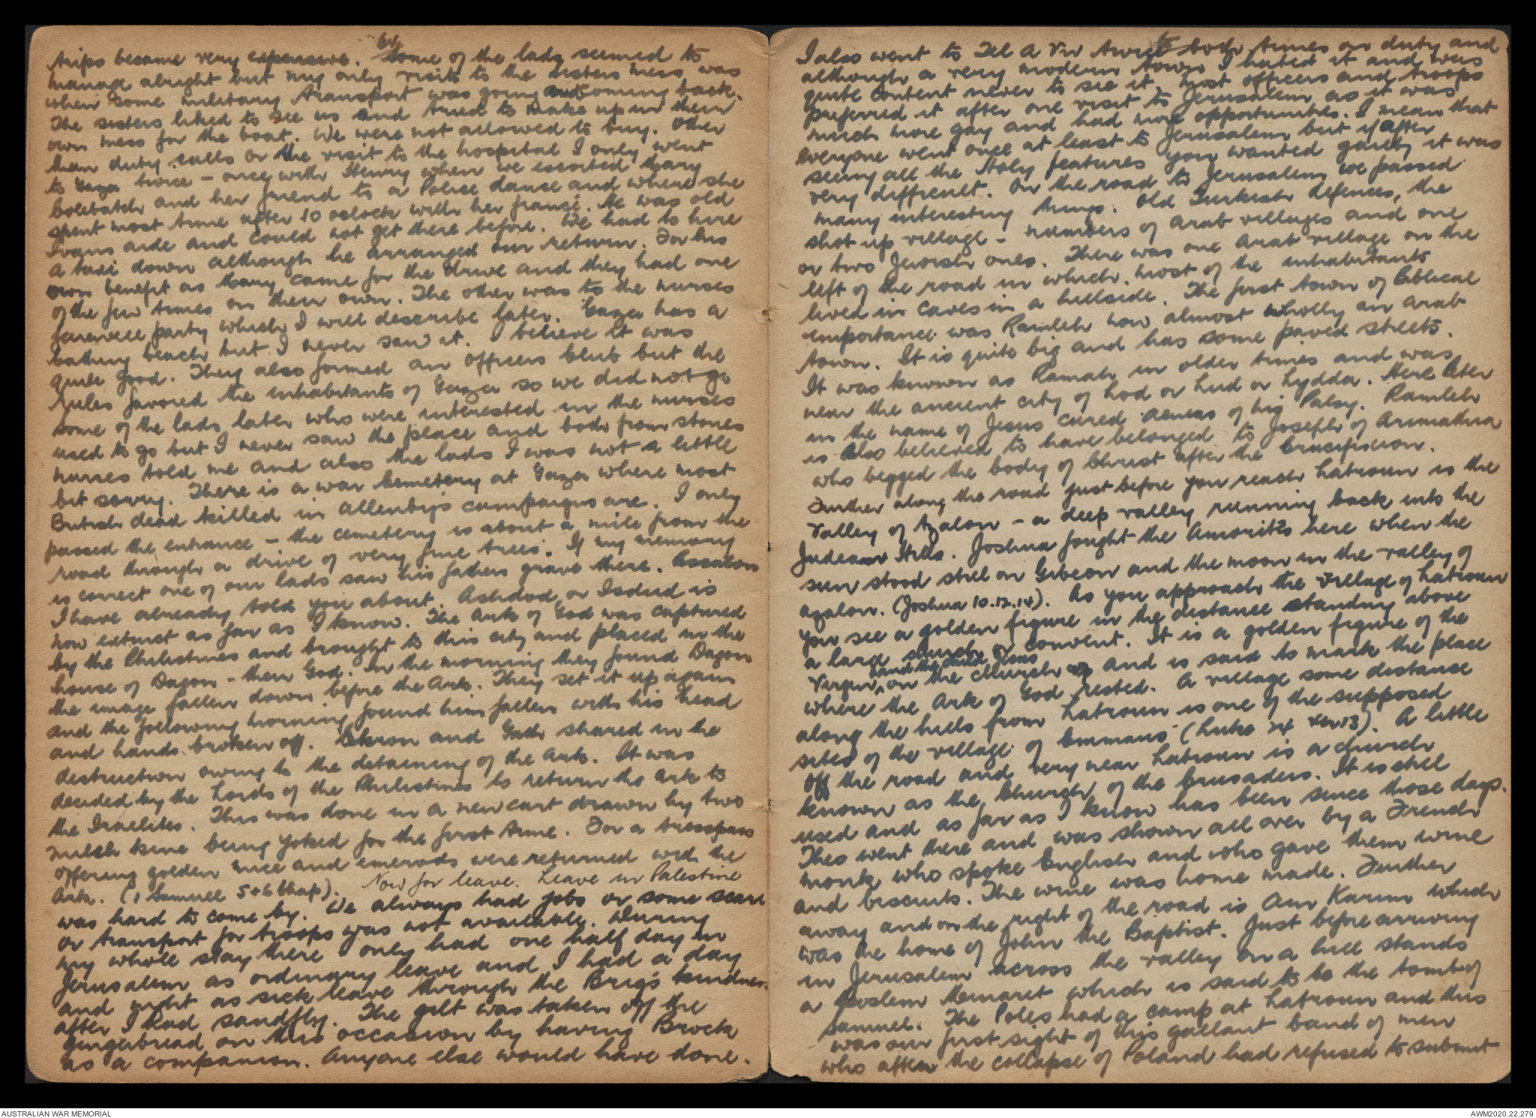 64
trips became very expensive. Some of the lads seemed to
manage alright but my only visit to the sisters mess was
when some military transport was going and coming back.
The sisters liked to see us and tried to make up in their
own mess for the boat. We were not allowed to buy. Other
than duty calls or the visit to the hospital I only went
to Gaza twice - once with Henry when we escorted Mary
Bolebatch and her friend to a Police dance and where she
spent most time after 10 oclock with her fiancé. He was old
Ivans aide and could not get there before. We had to hire
a taxi down although he arranged our return. For his
own benefit as Mary came for the drive and they had one
of the few times on their own. The other was to the nurses
farewell party which I will describe later. Gaza has a
bathing beach but I never saw it. I believe it was
quite good. They also formed an officers club but the
rules favored the inhabitants of Gaza so we did not go
some of the lads later who were interested in the nurses
used to go but I never saw the place and both from stories
nurses told me and also the lads I was not a little
bit sorry. There is a war Cemetery at Gaza where most
British dead killed in Allenby's campaigns are. I only
passed the entrance - the cemetery is about a mile from the
road through a drive of very fine trees. If my memory
is correct one of our lads saw his fathers grave there. Ascalon
I have already told you about. Ashdod or Isdud is
now extinct as far as I know. The Ark of God was captured
by the Philistines and brought to this city and placed in the
house of Dagon - their God. In the morning they found Dagon
the image fallen down before the Ark. They set it up again
and the following morning found him fallen with his head
and hands broken off. Ekron and Gath shared in the
destruction owing to the detaining of the Ark. It was
decided by the Lords of the Philistines to return the Ark to
the Israelites. This was done in a new cart drawn by two
milch kine being yoked for the first time. For a trespass
offering golden mice and emerods were returned with the
Ark. (1 Samuel 5+6 Chap). Now for leave. Leave in Palestine
was hard to come by. We always had jobs or some scare
or transport for troops was not available. During
my whole stay there I only had one half day in
Jerusalem as ordinary leave and I had a day
and night as sick leave through the Brig's kindness
after I had sandfly. The gilt was taken off the
gingerbread on this occasion by having Brock
as a companion. Anyone else would have done.
I also went to Tel A Viv twice both times on duty and
although a very modern town I hated it and was
quite content never to see it. Most officers and troops
preferred it after one visit to Jerusalem as it was
much more gay and had more opportunities. I mean that
everyone went once at least to Jerusalem but if after
seeing all the Holy features you wanted gaiety it was
very difficult. On the road to Jerusalem we passed
many interesting things. Old Turkish defences, the
shot up village - numbers of Arab villages and one
or two Jewish ones. There was one Arab village on the
left of the road in which most of the inhabitants
lived in caves in a hillside. The first town of Biblical
importance was Ramleh now almost wholly an Arab
town. It is quite big and has some paved streets.
It was known as Ramah in older times and was
near the ancient city of Lod or Lud or Lydda. Here Peter
in the name of Jesus cured Aeneas of his Palsy. Ramleh
is also believed to have belonged to Joseph of Arimathea
who begged the body of Christ after the Crucifixion.
Further along the road just before you reach Latroun is the
Valley of Ajalon - a deep valley running back into the
Judean Hills. Joshua fought the Amorites here when the
sun stood still on Gibeon and the moon in the valley of
Ajalon. (Joshua 10.12.14). As you approach the village of Latroun
you see a golden figure in the distance standing above
a large church or convent. It is a golden figure of the
Virgin and the child Jesus on the church and is said to mark the place
where the Ark of God rested. A village some distance
along the hills from Latroun is one of the supposed
sites of the village of Emmaus (Luke 24 ver 13). A little
off the road and very near Latroun is a church
known as the Church of the Crusaders. It is still
used and as far as I know has been since those days.
Theo went there and was shown all over by a French
monk who spoke English and who gave them wine
and biscuits. The wine was home made. Further
away and on the right of the road is Ain Karim which
was the home of John the Baptist. Just before arriving
in Jerusalem across the valley on a hill stands
a Moslem Menaret which is said to to the tomb of
Samuel. The Poles had a camp at Latroun and this
was our first sight of this gallant band of men
who after the collapse of Poland had refused to submit
AUSTRALIAN WAR MEMORIAL
AWM2020.22.279